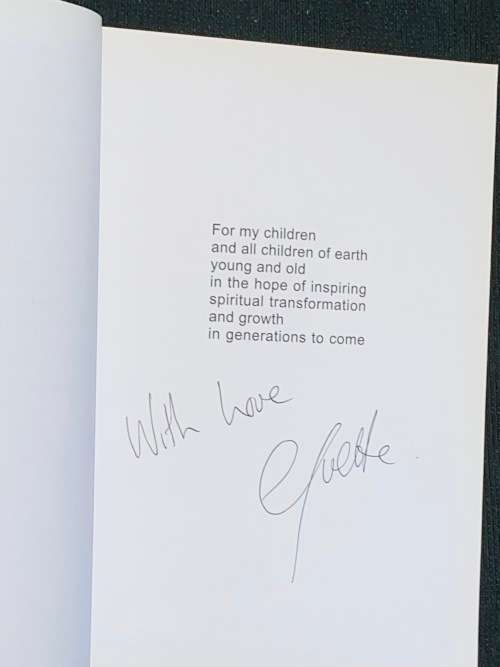 For my children
and all children of earth
young and old
in the hope of inspiring
spiritual transformation
and growth
in generations to come
With Love
Yvette